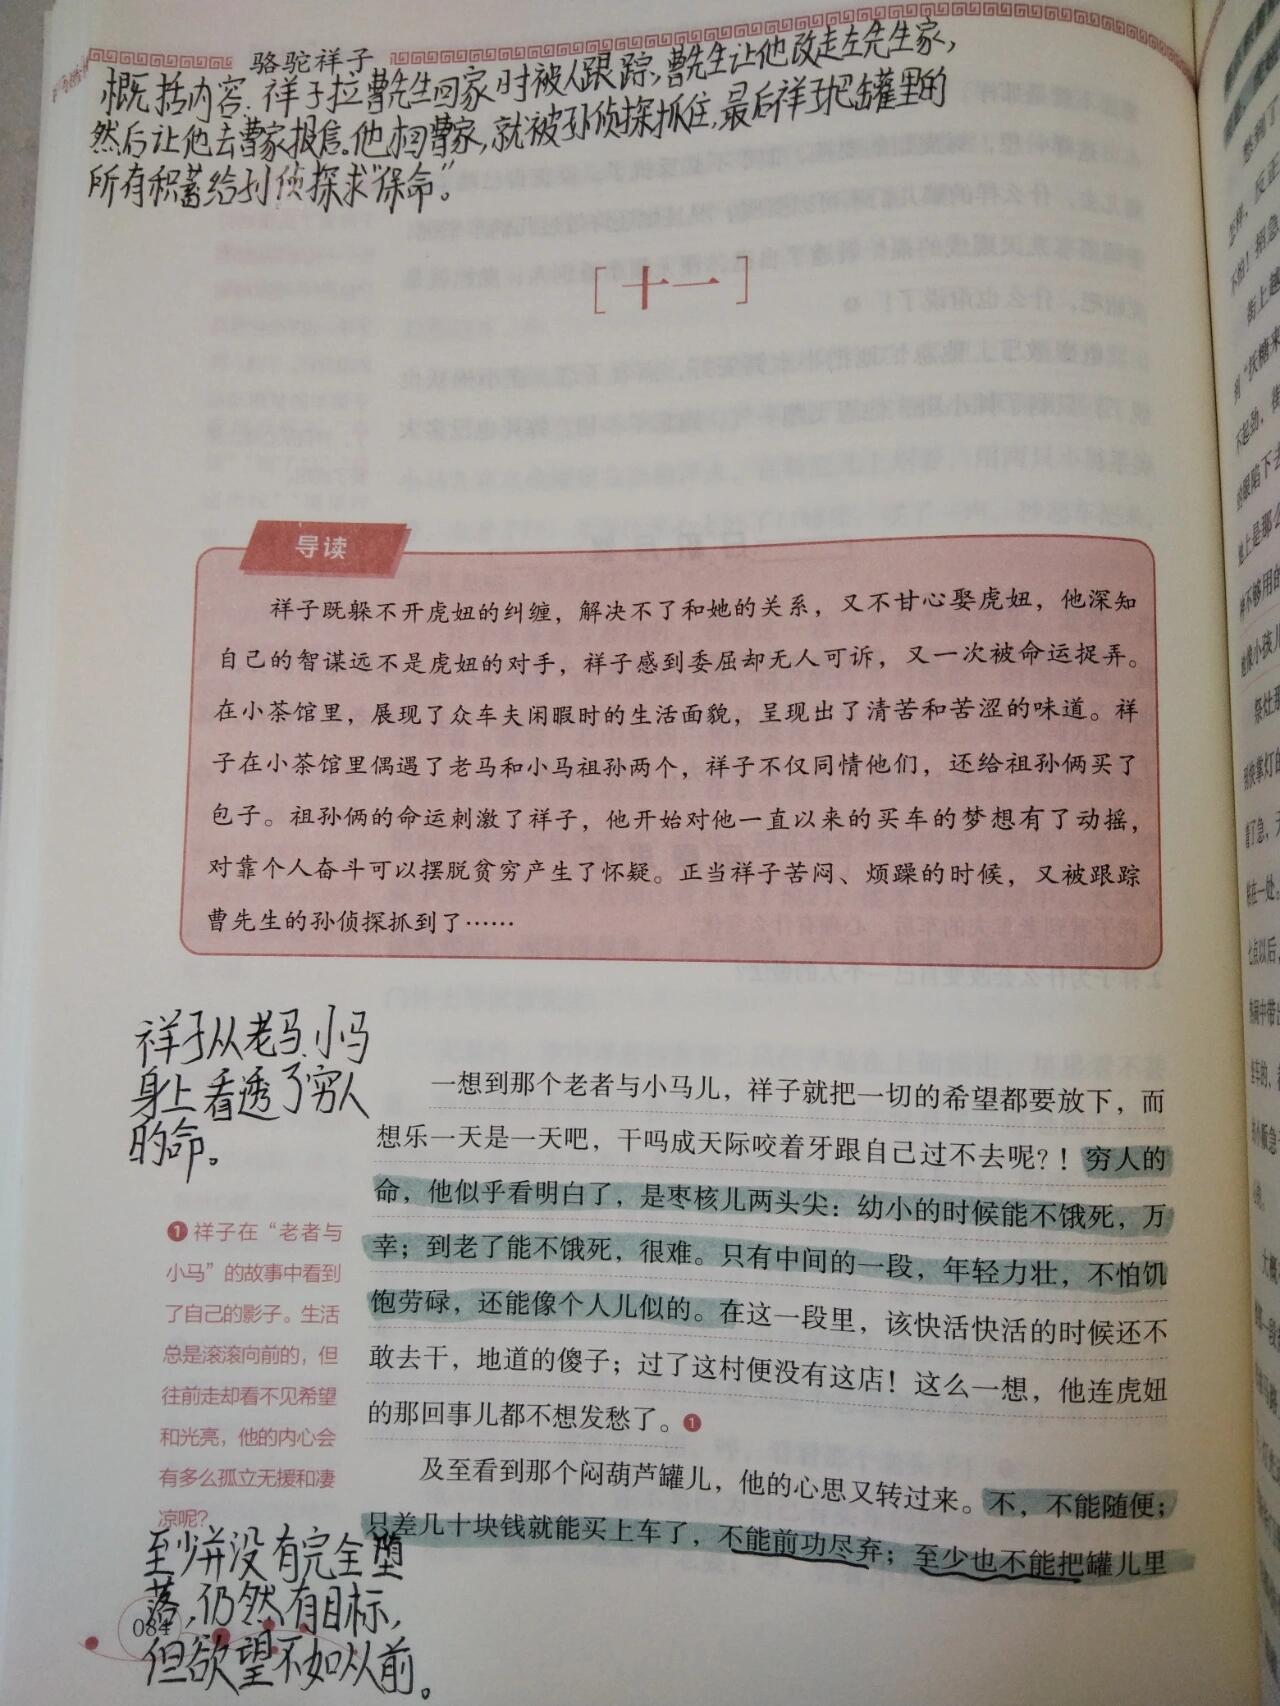 骆驼祥子
概括内容：祥子拉曹先生回家时被人跟踪，曹先生让他改走左先生家，
然后让他去曹家报信。他到曹家，就被孙侦探抓住，最后祥子把罐里的
所有积蓄给孙侦探求“保命”。
[十一]
导读
祥子既躲不开虎妞的纠缠，解决不了和她的关系，又不甘心娶虎妞，他深知
自己的智谋远不是虎妞的对手，祥子感到委屈却无人可诉，又一次被命运捉弄。
在小茶馆里，展现了众车夫闲暇时的生活面貌，呈现出了清苦和苦涩的味道。祥
子在小茶馆里偶遇了老马和小马祖孙两个，祥子不仅同情他们，还给祖孙俩买了
包子。祖孙俩的命运刺激了祥子，他开始对他一直以来的买车的梦想有了动摇，
对靠个人奋斗可以摆脱贫穷产生了怀疑。正当祥子苦闷、烦躁的时候，又被跟踪
曹先生的孙侦探抓到了……
祥子从老马、小马
身上看透了穷人
的命。
一想到那个老者与小马儿，祥子就把一切的希望都要放下，而
想乐一天是一天吧，干吗成天际咬着牙跟自己过不去呢？！穷人的
命，他似乎看明白了，是枣核儿两头尖：幼小的时候能不饿死，万
幸；到老了能不饿死，很难。只有中间的一段，年轻力壮，不怕饥
饱劳碌，还能像个人儿似的。在这一段里，该快活快活的时候还不
敢去干，地道的傻子；过了这村便没有这店！这么一想，他连虎妞
的那回事儿都不想发愁了。❶
❶祥子在“老者与
小马”的故事中看到
了自己的影子。生活
总是滚滚向前的，但
往前走却看不见希望
和光亮，他的内心会
有多么孤立无援和凄
凉呢？
及至看到那个闷葫芦罐儿，他的心思又转过来。不，不能随便；
只差几十块钱就能买上车了，不能前功尽弃；至少也不能把罐儿里
至少并没有完全堕
落，仍然有目标，
但欲望不如从前。
084